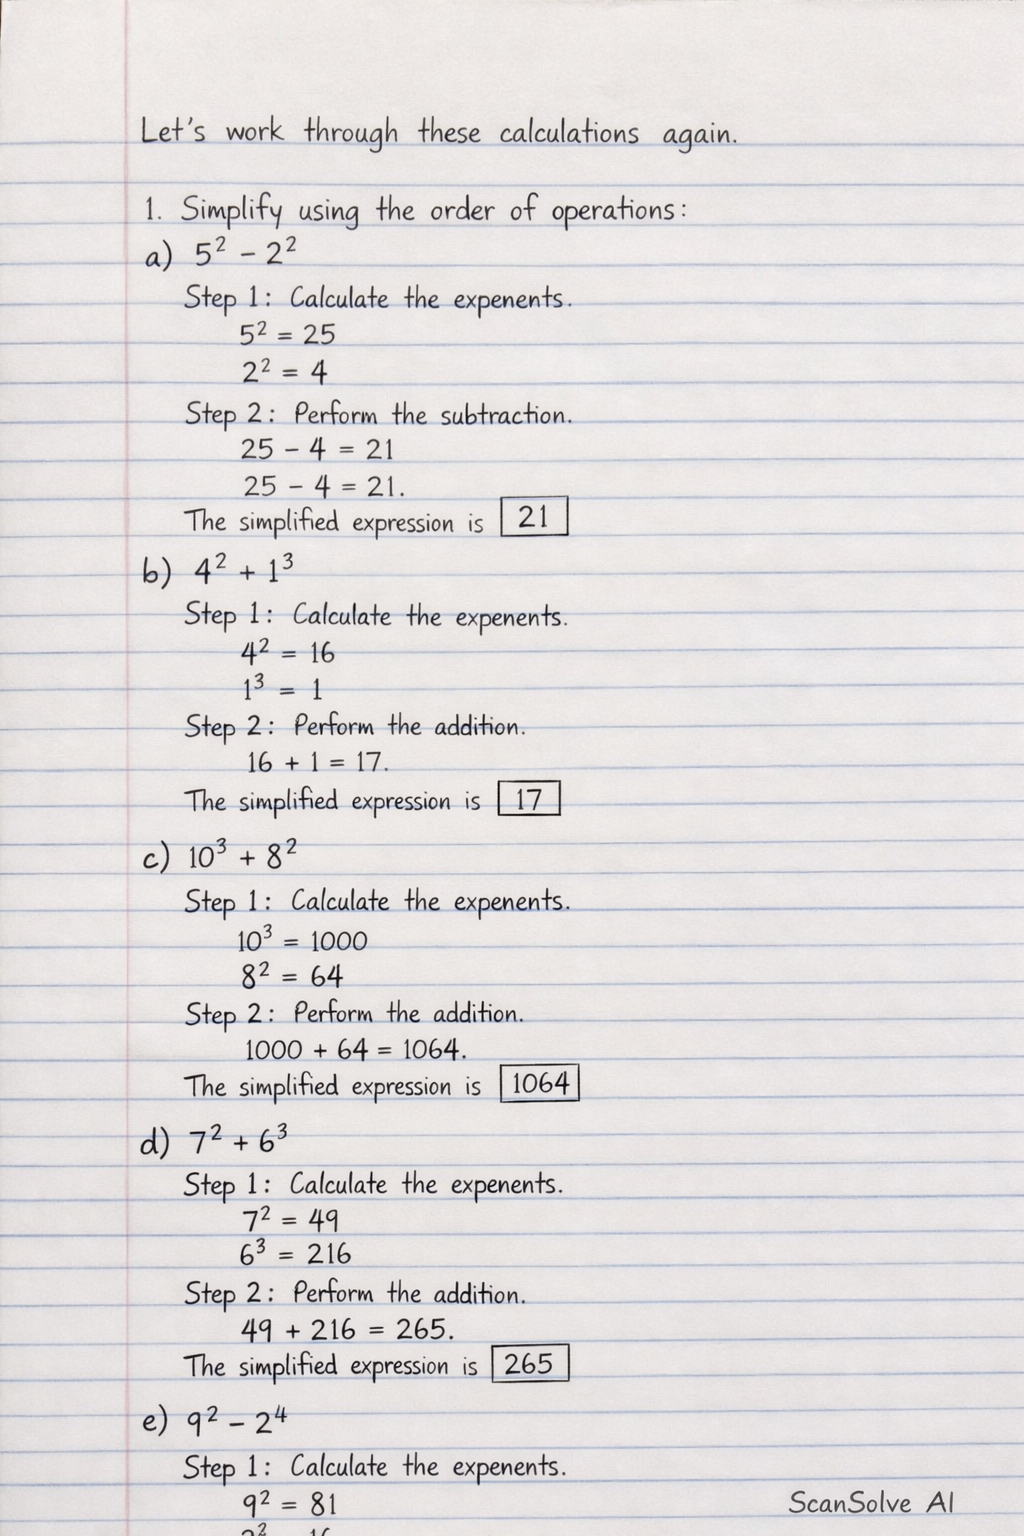 Let's work through these calculations again.
1. Simplify using the order of operations:
a) 5² - 2²
Step 1: Calculate the expenents.
5² = 25
2² = 4
Step 2: Perform the subtraction.
25 - 4 = 21
25 - 4 = 21.
The simplified expression is 21
b) 4² + 1³
Step 1: Calculate the expenents.
4² = 16
1³ = 1
Step 2: Perform the addition.
16 + 1 = 17.
The simplified expression is 17
c) 10³ + 8²
Step 1: Calculate the expenents.
10³ = 1000
8² = 64
Step 2: Perform the addition.
1000 + 64 = 1064.
The simplified expression is 1064
d) 7² + 6³
Step 1: Calculate the expenents.
7² = 49
6³ = 216
Step 2: Perform the addition.
49 + 216 = 265.
The simplified expression is 265
e) 9² - 2⁴
Step 1: Calculate the expenents.
9² = 81
ScanSolve AI